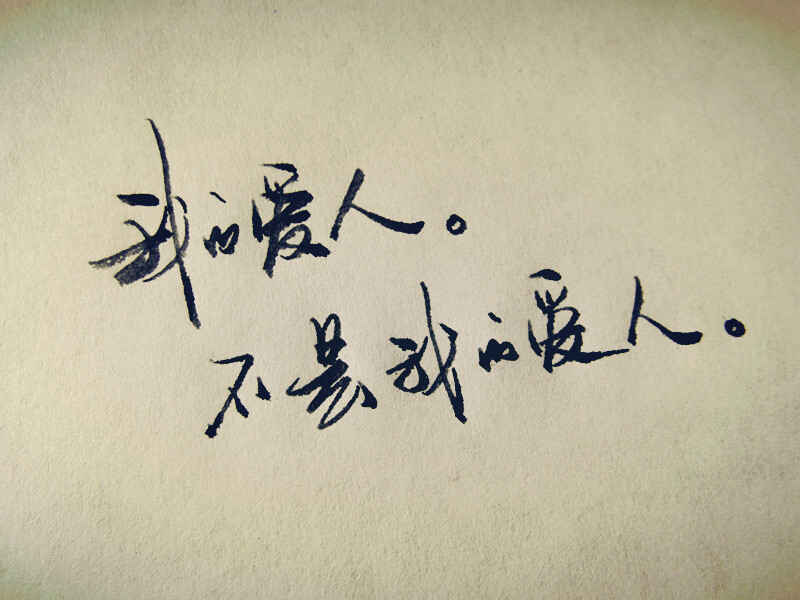 我的爱人。
不是我的爱人。